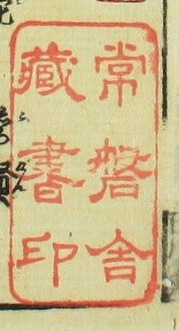 常磐舎
藏書印